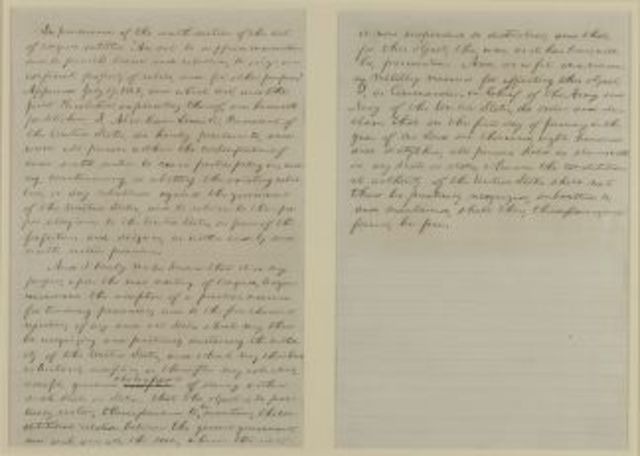 In pursuance of the sixth section of the act
of congress entitled "An act to suppress insurrection
and to punish treason and rebellion, to seize and
confiscate property of rebels, and for other purposes"
Approved July 17. 1862, and which act, and the
Joint Resolution explanatory thereof, are herewith
published, I, Abraham Lincoln, President of
the United States, do hereby proclaim to, and
warn all persons within the contemplation of
said sixth section to cease participating in, aid-
ing, countenancing, or abetting the existing rebel-
lion, or any rebellion against the government
of the United States, and to return to their pro-
per allegiance to the United States, on pain of the
forfeitures and seizures, as within and by said
sixth section provided.
And I hereby make known that it is my
purpose, upon the next meeting of congress, to again
recommend the adoption of a practical measure
for tendering pecuniary aid to the free choice or
rejection, of any and all States which may then
be recognizing and practically sustaining the authori-
ty of the United States, and which may then have
voluntarily adopted, or thereafter may voluntarily
adopt, gradual of slavery within
such State or States that the object is to prac-
tically restore, thenceforward to maintain, the con-
stitutional relation between the general government,
and each, and all the states, wherein that relation
is now suspended, or disturbed; and that,
for this object, the war, as it has been, will
be, prosecuted. And, as a fit and neces-
sary military measure for effecting this object,
I, as Commander-in-Chief of the Army and
Navy of the United States, do order and de-
clare that on the first day of January in the
year of Our Lord one thousand, eight hundred
and sixtythree, all persons held as slaves with-
in any state or states, wherein the constitution-
al authority of the United States shall not
then be practically recognized, submitted to,
and maintained, shall then, thenceforward, and
forever, be free.